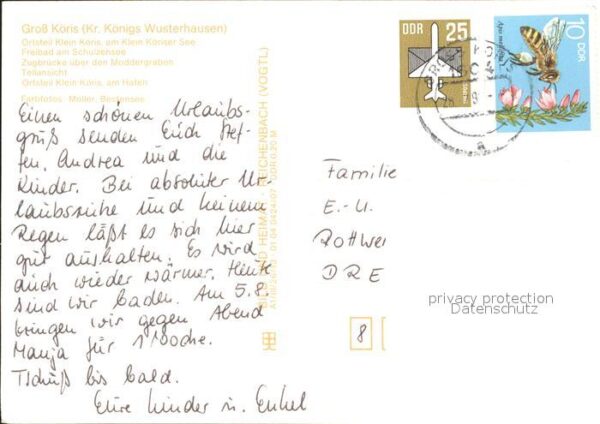 Groß Köris (Kr. Königs Wusterhausen)
Ortsteil Klein Köris, am Klein Köriser See
Freibad am Schulzensee
Zugbrücke über den Moddergraben
Teilansicht
Ortsteil Klein Köris, am Hafen
Farbfotos: Müller, Bestensee
Einen schönen Urlaubs-
gruß senden Euch Stef-
fen, Andrea und die
Kinder. Bei absoluter Ur-
laubsruhe und keinem
Regen läßt es sich hier
gut aushalten. Es wird
auch wieder wärmer. Heute
sind wir baden. Am 5.8.
bringen wir gegen Abend
Manja für 1 Woche.
Tschüß bis bald.
Eure Kinder u. Enkel
BILD UND HEIMAT REICHENBACH (VOGTL)
DDR
25
10
DDR
Familie
E.-U.
Rottwei
DRE
8
privacy protection
Datenschutz